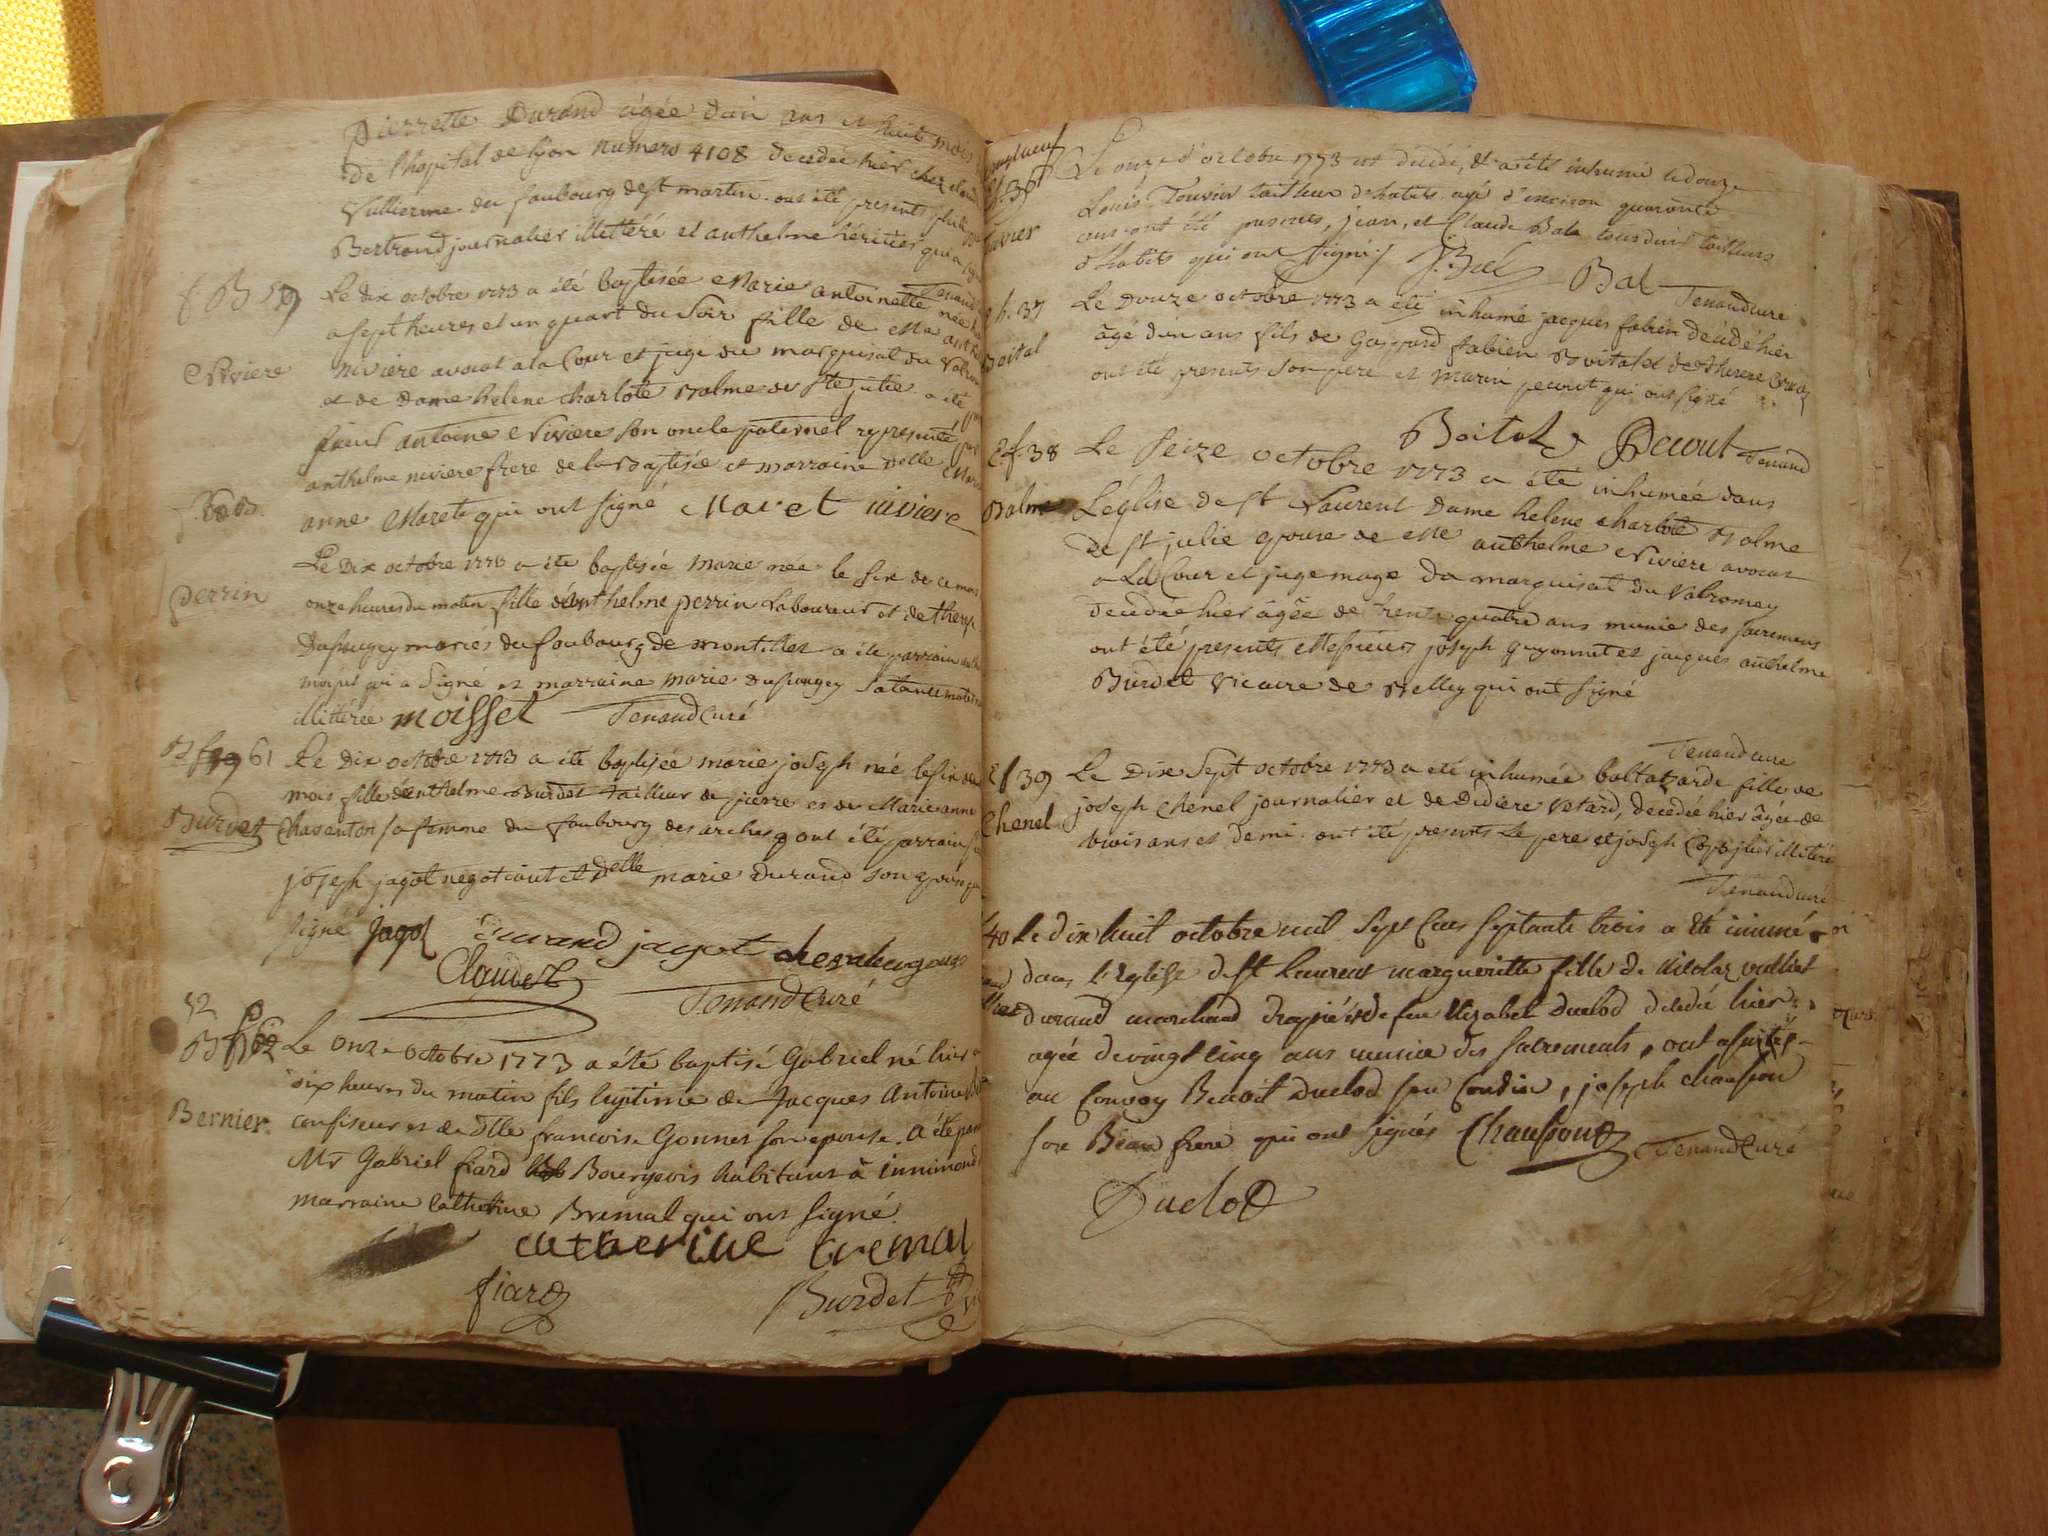 Pierrette Durand agée d'un ans et huit mois
de l'hopital de lyon numero 4108 decedée hier chez
Vullierme du faubourg de st martin. ont été presents
Bertrand journalier illettéré et anthelme héritier qui a
Tenand
f. B 59
Le dix octobre 1773 a été baptisée Marie antoinette née
a sept heures et un quart du soir fille de Me
Niviere
niviere avocat a la Cour et juge du marquisat du
et de dame helene charlote Balme de Ste julie. a été
sieur antoine Niviere son oncle paternel representé par
anthelme niviere frere de la Baptisée et marraine delle
anne Maret qui ont signé Maret niviere
Le dix octobre 1773 a été baptisée marie née le six de ce mois
Perrin
onze heures du matin fille d'anthelme perrin Laboureur et de
mariés du faubourg de a été parrain
qui a signé et marraine marie sa tante
illettérée moisset Tenand Curé
B f 61
Le dix octobre 1773 a été baptisée marie joseph née le six
mois fille d'anthelme Burdet tailleur de pierre et de Marie anne
Burdet
Chavanton sa femme du faubourg des arches ont été parrain
joseph jagot negotiant et Delle marie durand son
signé jagot Durand jagot
Claudet
Tenand Curé
52
B f 62
Le onze octobre 1773 a été baptisé Gabriel né hier a
dix heures du matin fils legitime de Jacques Antoine
Bernier.
confiseur et de Dlle francoise Gonnet son epouse. a été
Mr Gabriel fiard Bourgeois habitant à innimond
marraine Catherine Bremal qui ont signé.
catherine bremal
fiard
Burdet
Le onze d'octobre 1773 est decedé, et a été inhumé le douze
E f. 36
Louis tailleur d'habits agé d'environ quarante
ans ont été presents, jean, et Claude Bal tous deux tailleurs
d'habits qui ont signé
J. Bal Bal Tenand curé
h. 37
Le Douze octobre 1773 a été inhumé jacques fabien decedé hier
Boital
âgé d'un ans fils de Gaspard fabien Boital et de therese
ont été presents son pere et marin pecout qui ont signé
Boital Pecout Tenand
E. f. 38
Le seize octobre 1773 a été inhumée dans
Balme
L'église de st Laurent Dame helene charlote Balme
de st julie epouse de Me anthelme Niviere avocat
a La Cour et juge mage du marquisat du Valromey
decedée hier âgée de trente quatre ans munie des sacremens
ont été presents Messieurs joseph guyonnet et jacques anthelme
Burdet Vicaire de Belley qui ont signé
Tenand curé
E f 39
Le dix sept octobre 1773 a eté inhumée baltazarde fille de
Chenel
joseph Chenel journalier et de Didiere Vetard, decedée hier âgée de
trois ans et demi. ont été presents Le pere et joseph illetéré
Tenand curé
40
Le dix huit octobre mil sept cens septante trois a été inumée
dans l'eglise de st Laurent margueritte fille de Nicolas vulliet
durand marchand drapié et de feu Elizabet Duclod decedé hier
agée de vingt cinq ans munie des sacrements, ont assistés
au convoy Benoit Duclod son Cousin, joseph chanson
son Beau frere qui ont signés Tenand Curé
Duclod